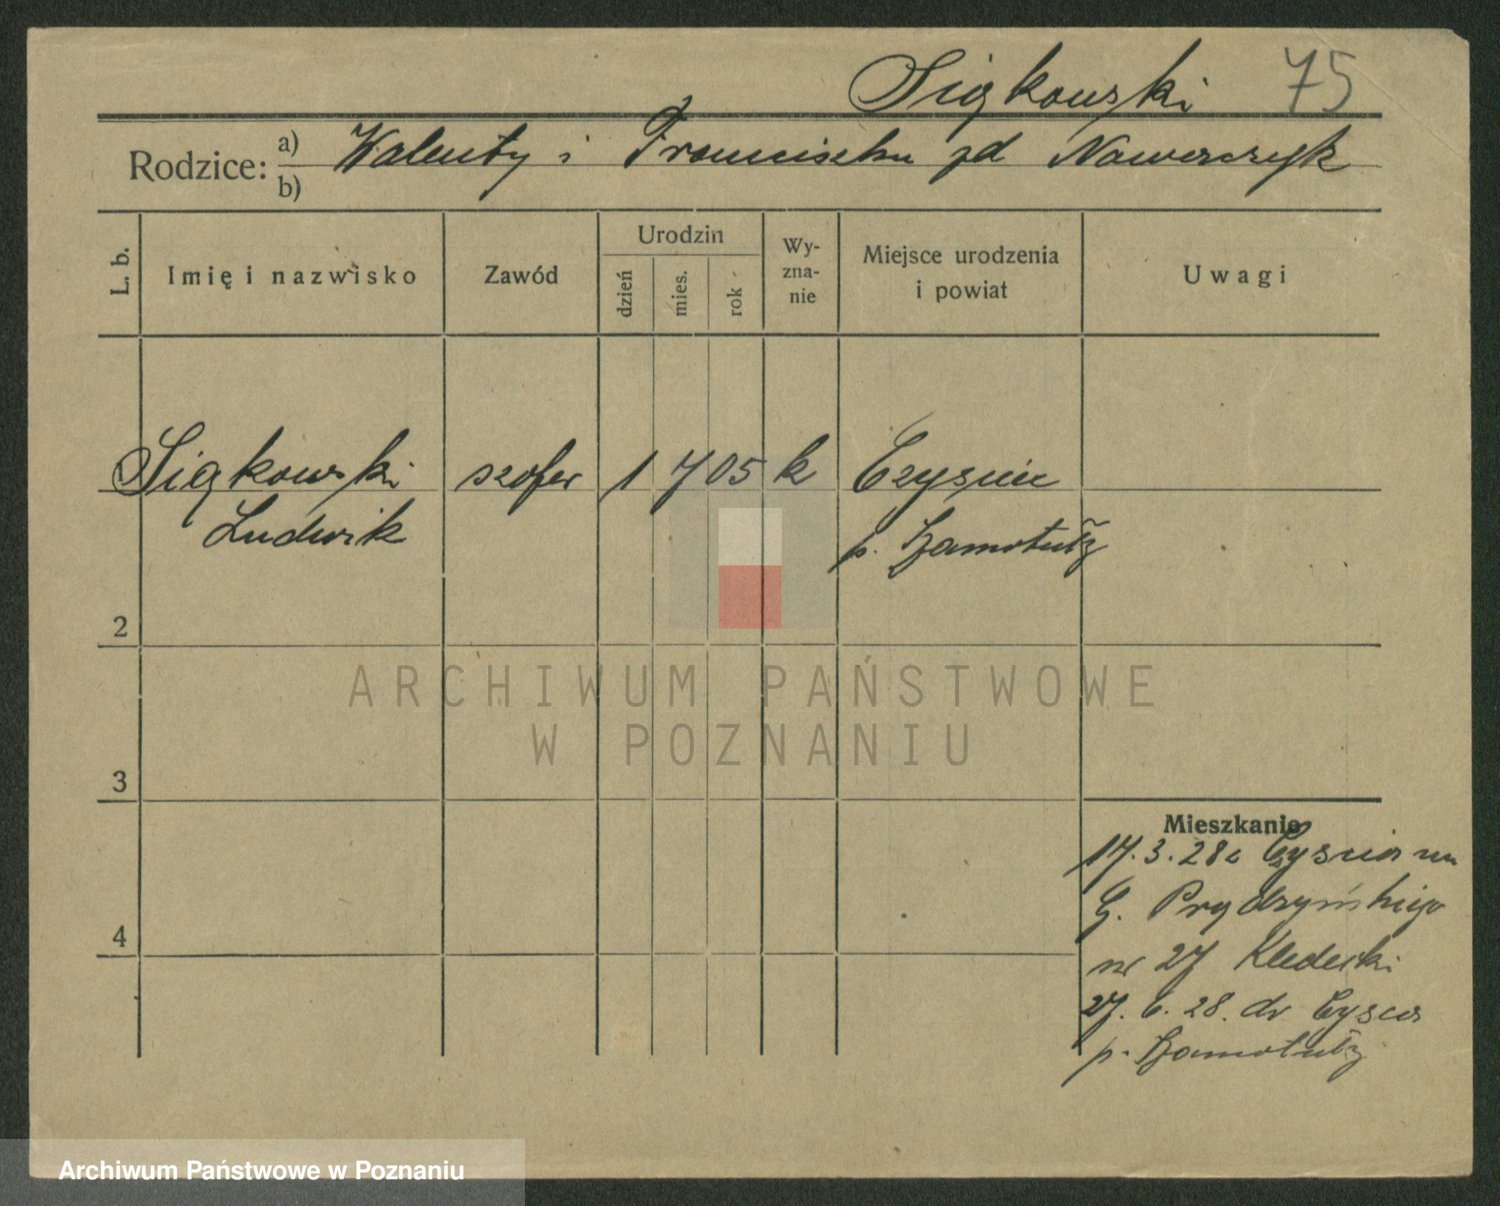 Siąkowski 75
Rodzice: a) Walenty i Franciszka zd Nawrczyk
b)
L. b.
Imię i nazwisko
Zawód
Urodzin
dzień
mies.
rok
Wy-
zna-
nie
Miejsce urodzenia
i powiat
Uwagi
Siąkowski szofer 1 7 05 k
Ludwik
p. Szamotuły
2
ARCHIWUM PAŃSTWOWE
W POZNANIU
3
Mieszkanie
17. 3. 28
G. Prądzyńskiego
nr 27 Kledecki
4
27. 6. 28. do
p. Szamotuły
Archiwum Państwowe w Poznaniu